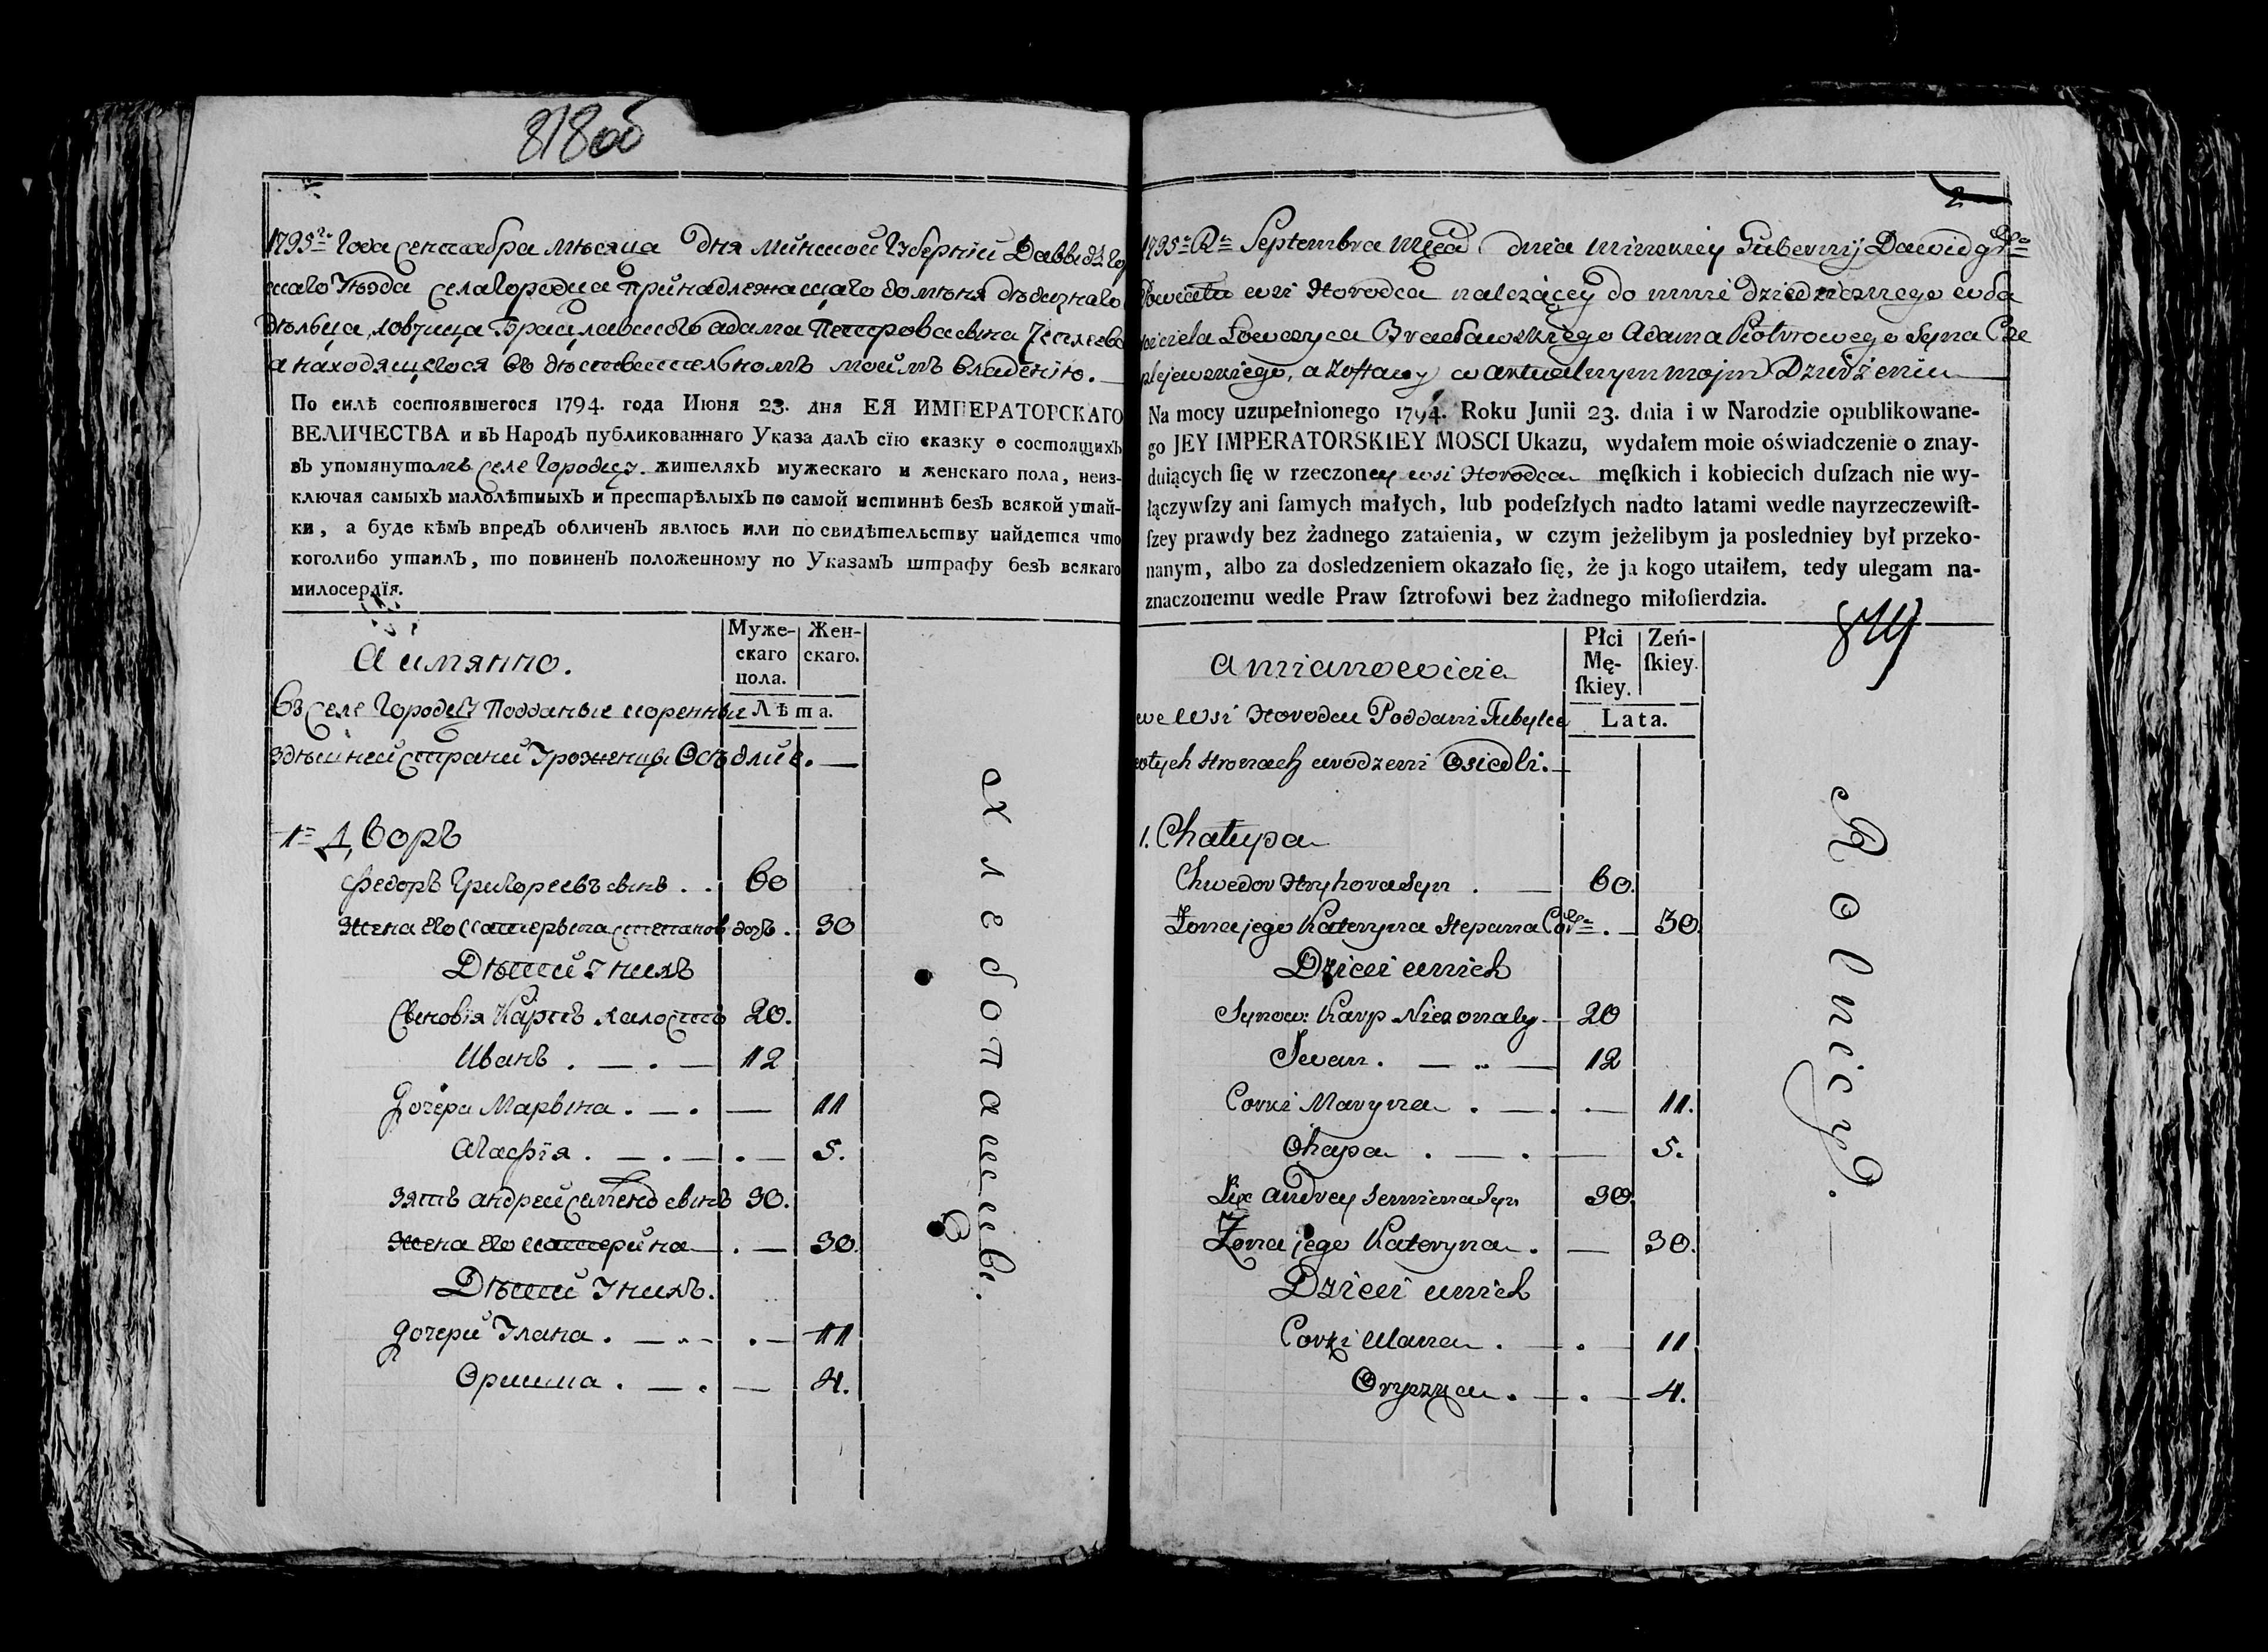 818об
1795го Года Сентабра мѣсяца дня Минской Губерніи Давыд Го
скаго Уѣзда села Городца принадлежащаго до мѣня дѣдизнаго
дѣльца, ловчица Брацлавского адама Петрова сына
а находящегося въ дѣствителномъ моимъ владѣнію.
По силѣ состоявшегося 1794. года Июня 23. дня ЕЯ ИМПЕРАТОРСКАГО
ВЕЛИЧЕСТВА и въ Народъ публикованнаго Указа далъ сїю сказку о состоящихъ
въ упомянутомъ селе Городцу. жителяхъ мужескаго и женскаго пола, неиз-
ключая самыхъ малолѣтныхъ и престарѣлыхъ по самой истиннѣ безъ всякой утай-
ки, а буде кѣмъ впредъ обличенъ явлюсь или по свидѣтельству найдется что
коголибо утаилъ, то повиненъ положенному по Указамъ штрафу безъ всякаго
милосердїя.
А имянно.
Муже-
скаго
пола.
Жен-
скаго.
Лѣта.
Въ селе Городцу Подданые коренные
здѣшней страни Уроженцы Осѣдлие.
1= Дворъ
Федоръ Григореевъ сынъ . . 60
Жена его Катерына степанов дочъ . 30
Дѣтей У нихъ
Сыновїя Карпъ холостъ 20.
Иванъ . — . — 12
Дочери Марына . — . — 11
Агафїя . — . — . — 5.
Зятъ андрей семенов сынъ 30.
Жена его катерина — . — 30.
Дѣтей У нихъ.
Дочери Улана . — . — . — 11
Оришка . — . — 4.
хлебопашцы.
2
1795o Ru Septembra Mcа dnia Minskiey Gubernij Dawidgrgo
Powiatu wsi Horodca należącey do mnie dziedzicznego wła
sciciela Łowczyca Bracławskiego Adama Piotrowego Syna Cze
plejewskiego, a Zostaiący w aktualnym mojm Dzierżeniu
Na mocy uzupełnionego 1794. Roku Junii 23. dnia i w Narodzie opublikowane-
go JEY IMPERATORSKIEY MOSCI Ukazu, wydałem moie oświadczenie o znay-
duiących ſię w rzeczoney wsi Horodca męſkich i kobiecich duſzach nie wy-
łączywſzy ani ſamych małych, lub podeſzłych nadto latami wedle nayrzeczewiſt-
ſzey prawdy bez żadnego zataienia, w czym jeżelibym ja posledniey był przeko-
nanym, albo za dosledzeniem okazało ſię, że ja kogo utaiłem, tedy ulegam na-
znaczonemu wedle Praw ſztrofowi bez żadnego miłoſierdzia.
819
a mianowicie
Płci
Mę-
ſkiey.
Zeń-
ſkiey.
Lata.
we Wsi Horodcu Poddani Tubylce
w tych stronach urodzeni Osiedli.
1. Chałupa
Chwedor Hryhora Syn . — 60.
Żona jego Kateryna Stepana Cor . — 30.
Dzieci u nich
Synow: Karp Nieżonaty — 20
Iwan. — . — 12
Corki Maryna . — . — 11.
Ohapa . — . — 5.
Zięć Andrey Semiena Syn 30.
Żona jego Kateryna . — 30.
Dzieci u nich
Corki Ulana . — . — 11
Oryszka . — . — 4.
Rolnicy.